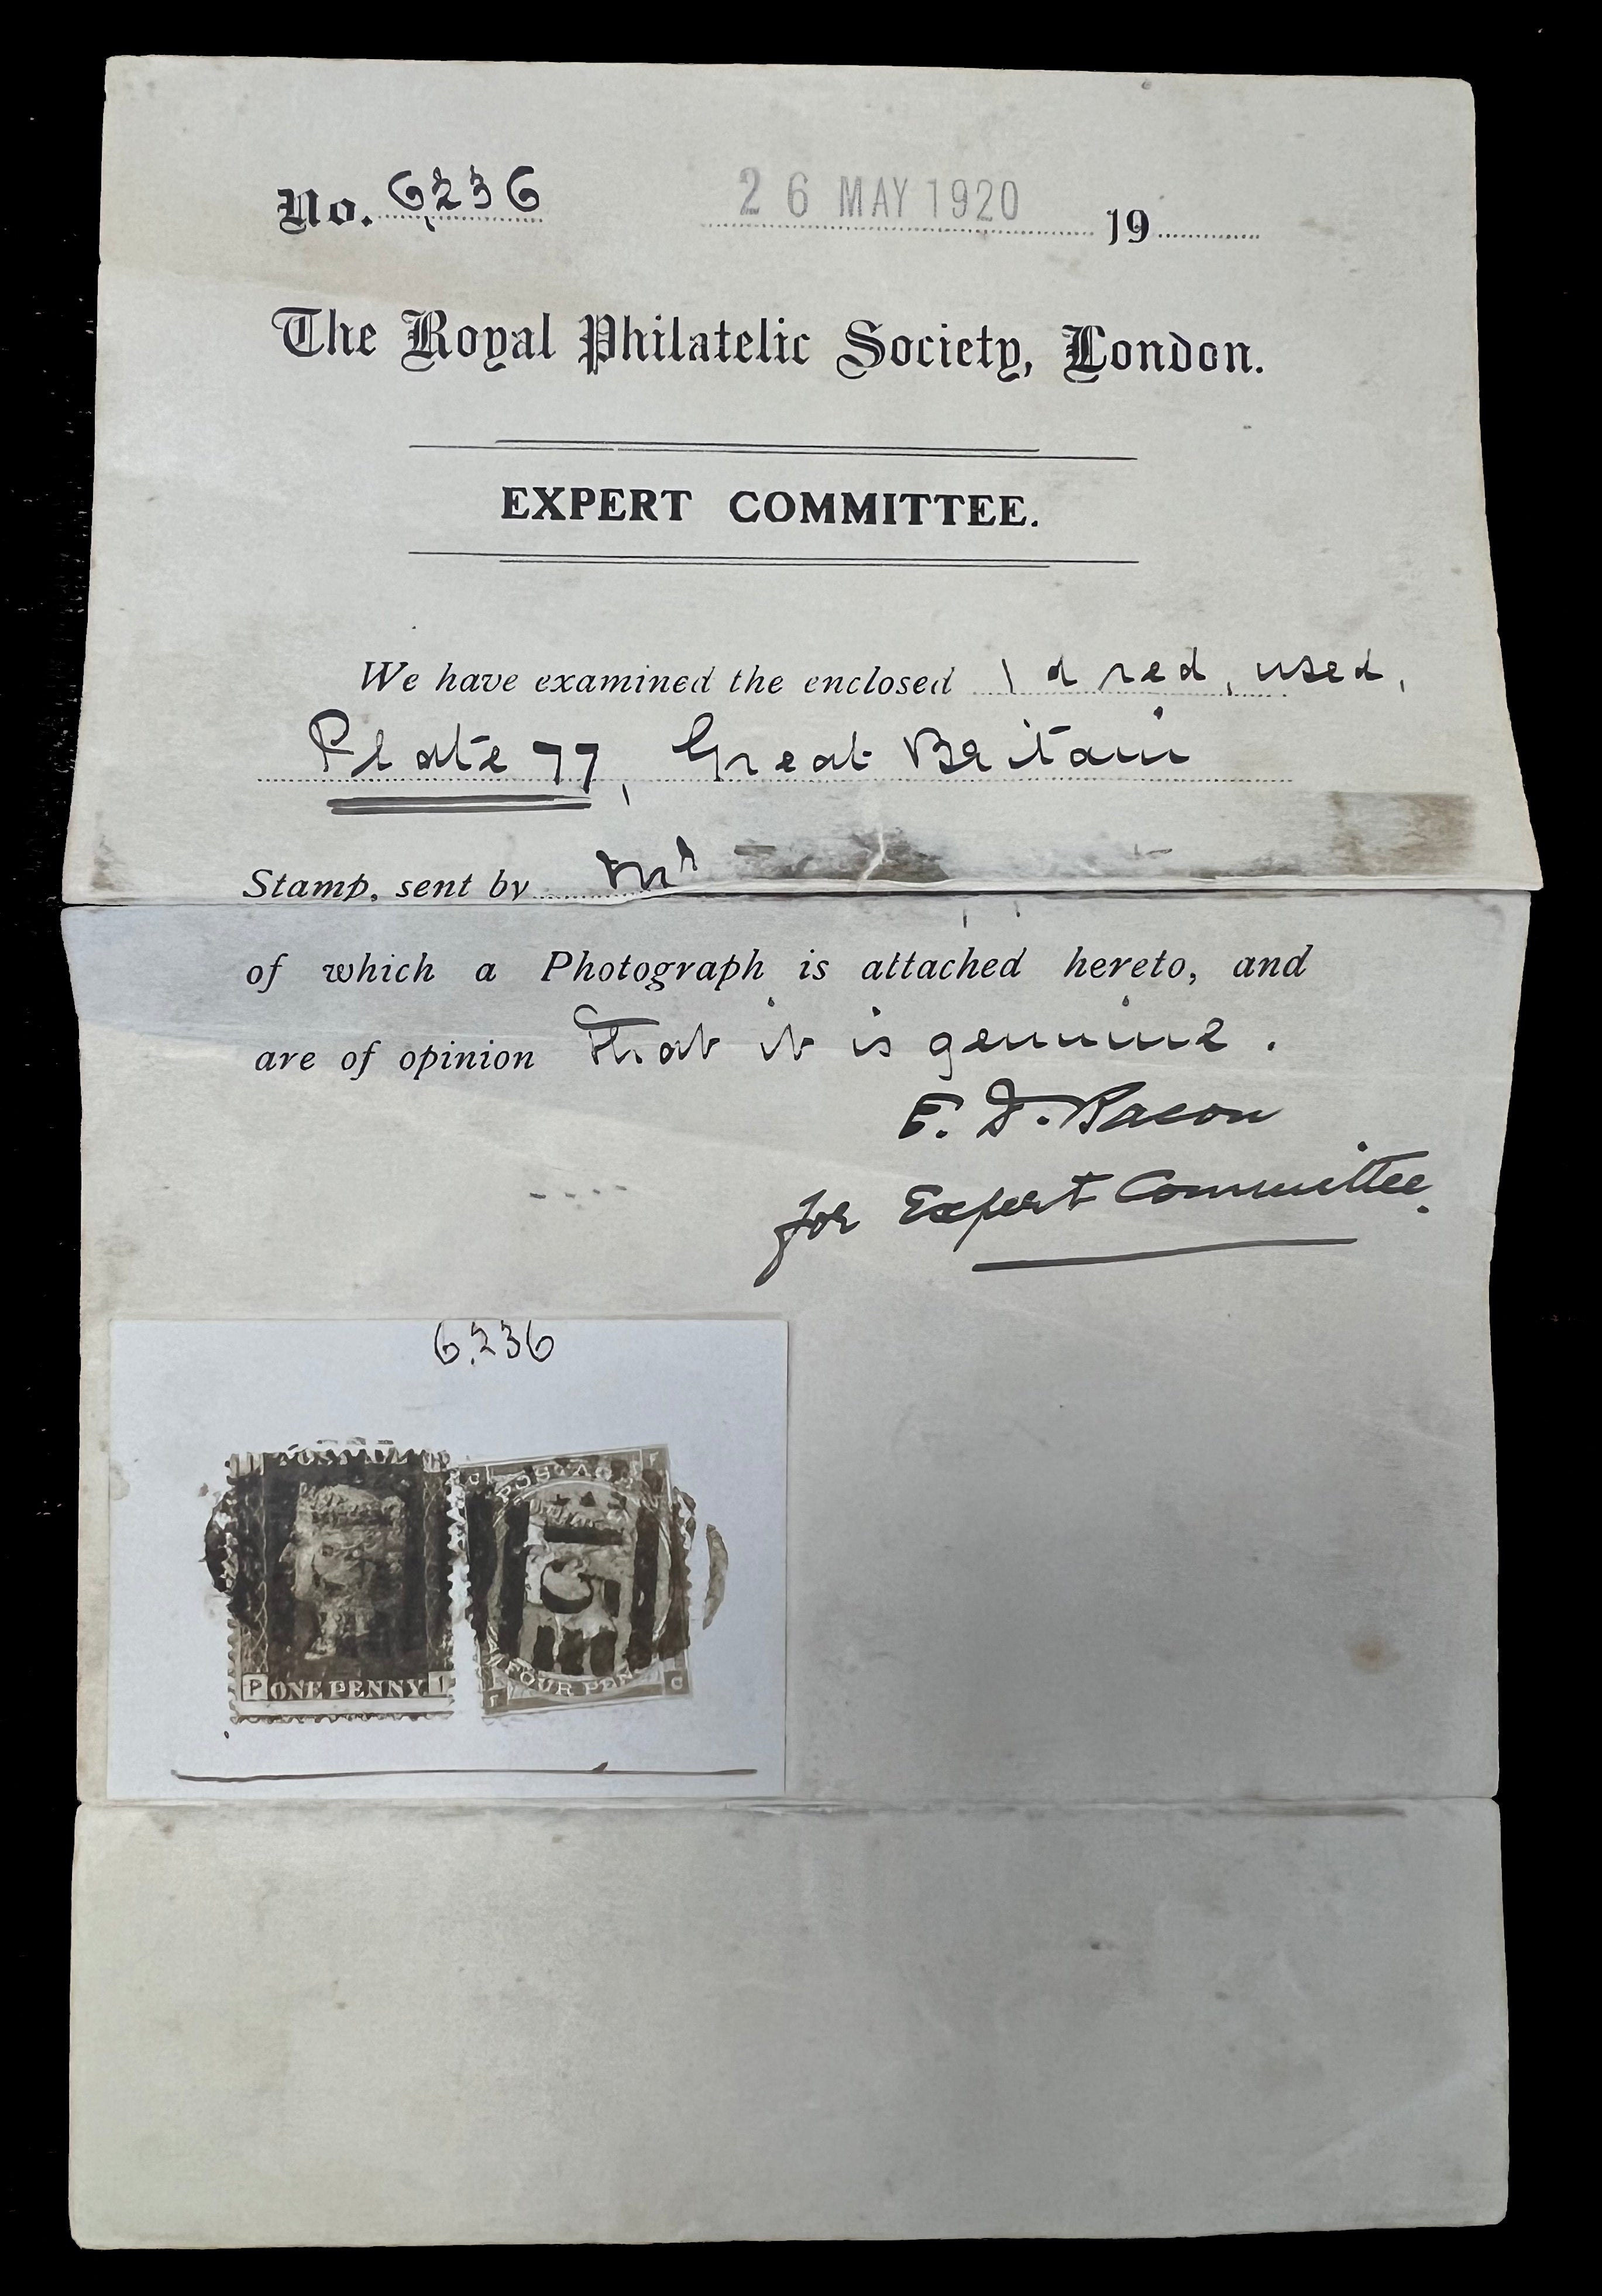 No. 6236 26 MAY 1920 19
The Royal Philatelic Society, London.
EXPERT COMMITTEE.
We have examined the enclosed 1d red, used,
Plate 77, Great Britain
Stamp, sent by Mr
of which a Photograph is attached hereto, and
are of opinion that it is genuine.
E. D. Bacon
for Expert Committee.
6236
POSTAGE
P ONE PENNY I
FOUR PEN
F G